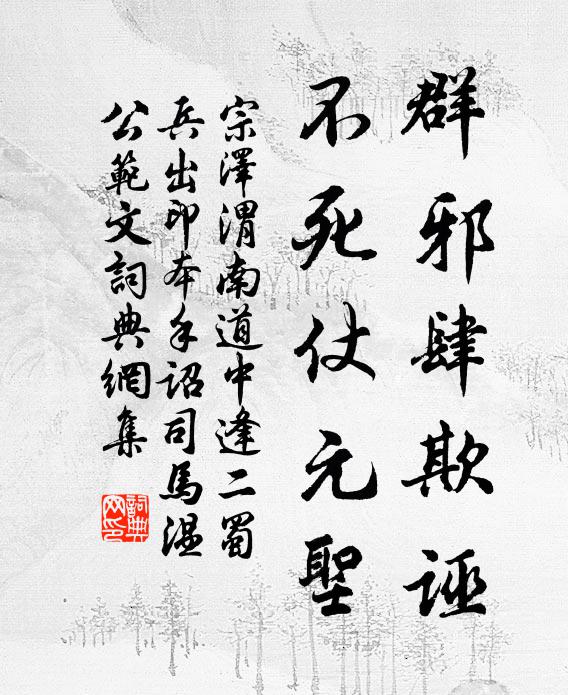 群邪肆欺誣
不死仗元聖
宗澤渭南道中逢二蜀
兵出印本手詔司馬溫
公範文詞典網集
詞典網印